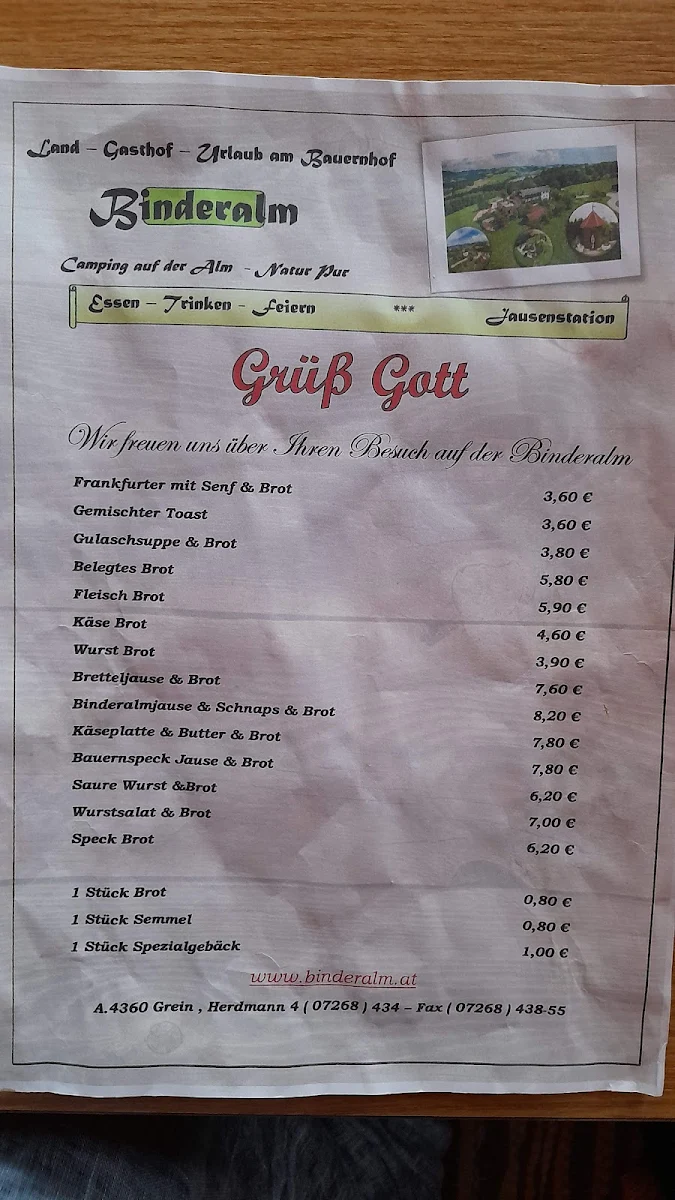 Land – Gasthof – Urlaub am Bauernhof
Binderalm
Camping auf der Alm - Natur Pur
Essen – Trinken - Feiern *** Jausenstation
Grüß Gott
Wir freuen uns über Ihren Besuch auf der Binderalm
Frankfurter mit Senf & Brot 3,60 €
Gemischter Toast 3,60 €
Gulaschsuppe & Brot 3,80 €
Belegtes Brot 5,80 €
Fleisch Brot 5,90 €
Käse Brot 4,60 €
Wurst Brot 3,90 €
Bretteljause & Brot 7,60 €
Binderalmjause & Schnaps & Brot 8,20 €
Käseplatte & Butter & Brot 7,80 €
Bauernspeck Jause & Brot 7,80 €
Saure Wurst &Brot 6,20 €
Wurstsalat & Brot 7,00 €
Speck Brot 6,20 €
1 Stück Brot 0,80 €
1 Stück Semmel 0,80 €
1 Stück Spezialgebäck 1,00 €
www.binderalm.at
A.4360 Grein , Herdmann 4 ( 07268 ) 434 – Fax ( 07268 ) 438-55